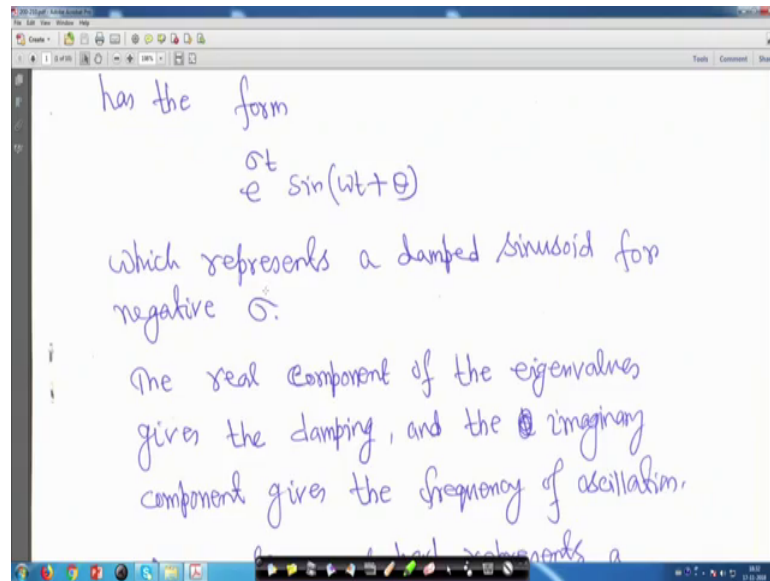 200-210.pdf - Adobe Acrobat Pro
File Edit View Window Help
Create
Tools Comment Share
has the form
e^σt sin(ωt + θ)
which represents a damped sinusoid for
negative σ.
The real component of the eigenvalues
gives the damping, and the imaginary
component gives the frequency of oscillation.
represents a